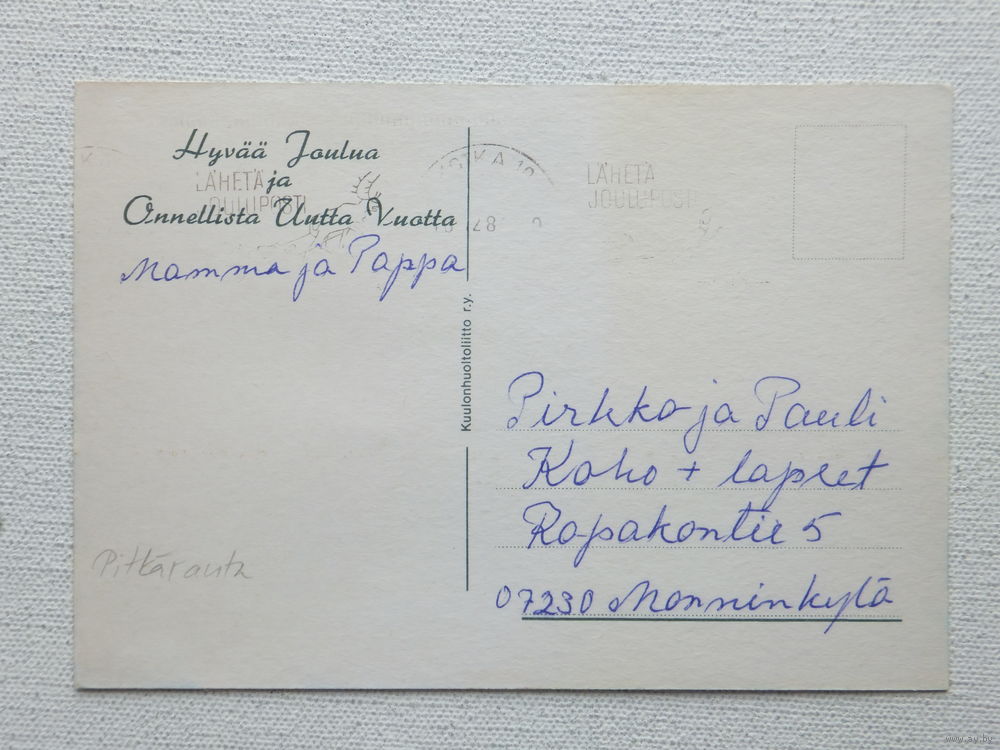 Hyvää Joulua
ja
Onnellista Uutta Vuotta
LÄHETÄ
JOULUPOSTI
KOTKA 10
Mamma ja Pappa
LÄHETÄ
JOULUPOSTI
Kuulonhuoltoliitto r.y.
Pirkko ja Pauli
Koho + lapset
Ropakontie 5
07230 Monninkylä
Pitkäranta
www.ay.by